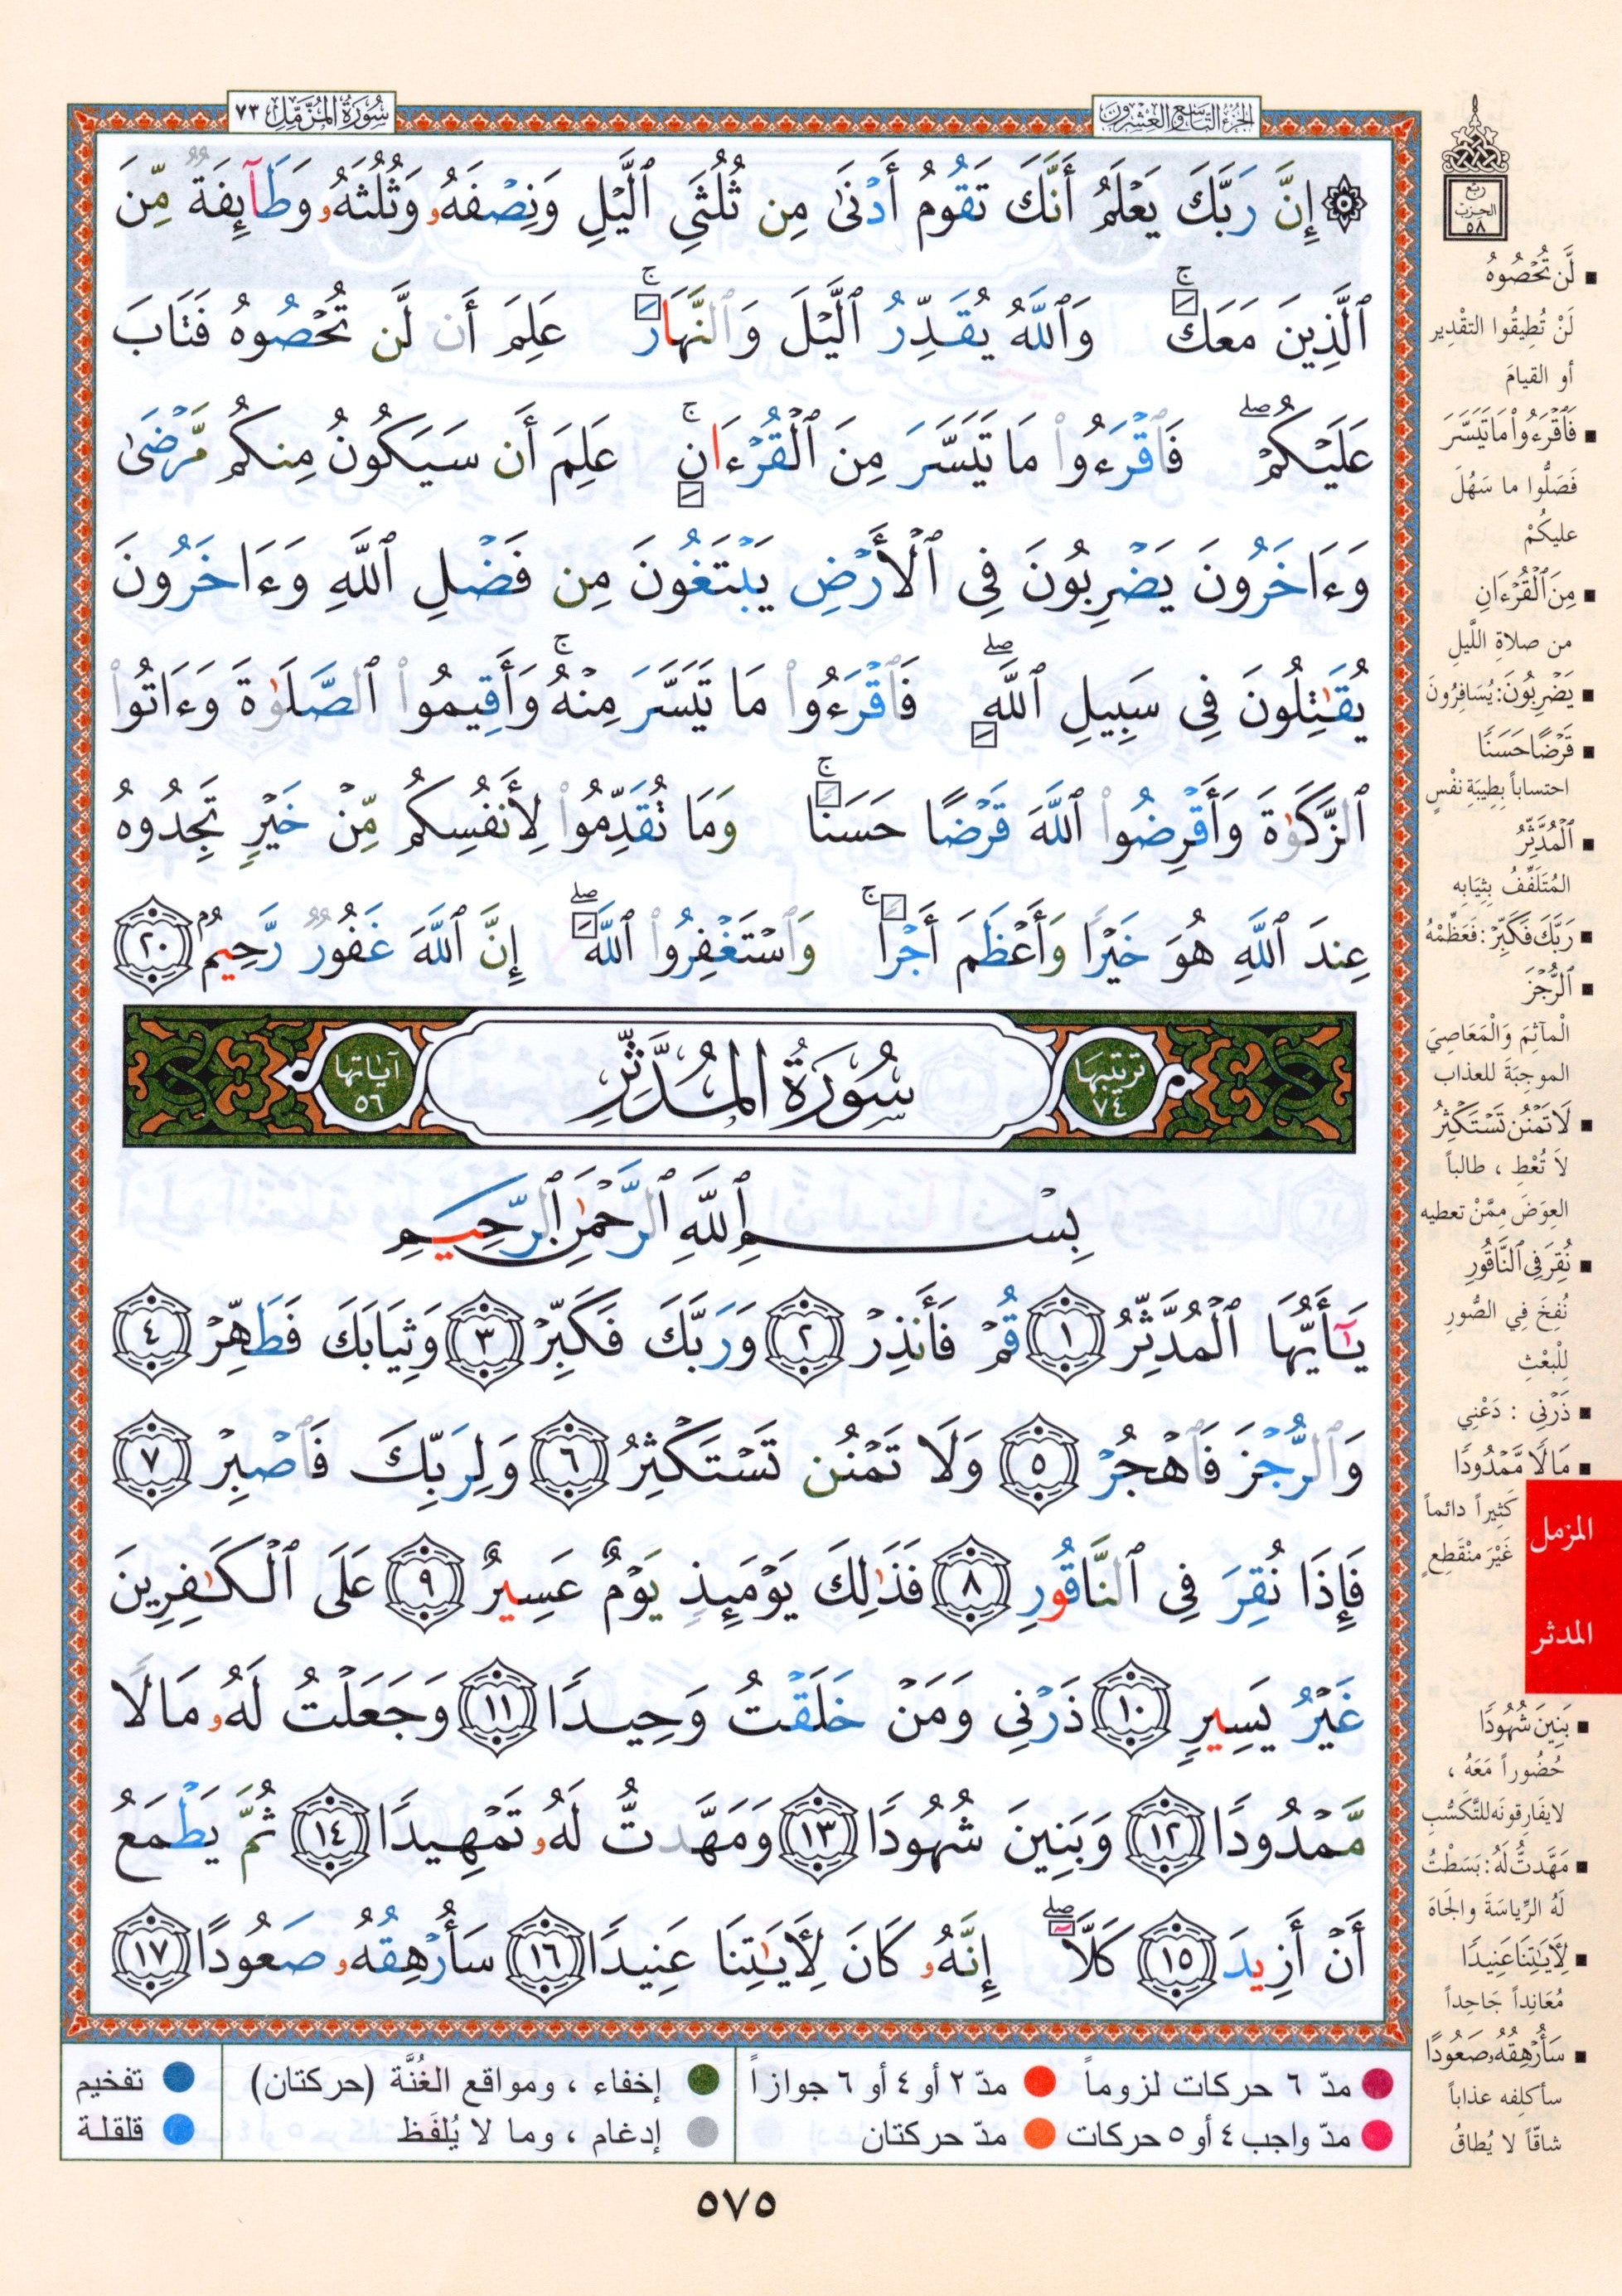 سُورَةُ المُزَّمِّل ٧٣
الجزء التاسع والعشرون
۞ إِنَّ رَبَّكَ يَعْلَمُ أَنَّكَ تَقُومُ أَدْنَىٰ مِن ثُلُثَىِ ٱلَّيْلِ وَنِصْفَهُۥ وَثُلُثَهُۥ وَطَآئِفَةٌ مِّنَ
ٱلَّذِينَ مَعَكَ ۚ وَٱللَّهُ يُقَدِّرُ ٱلَّيْلَ وَٱلنَّهَارَ ۚ عَلِمَ أَن لَّن تُحْصُوهُ فَتَابَ
عَلَيْكُمْ ۖ فَٱقْرَءُوا۟ مَا تَيَسَّرَ مِنَ ٱلْقُرْءَانِ ۚ عَلِمَ أَن سَيَكُونُ مِنكُم مَّرْضَىٰ
وَءَاخَرُونَ يَضْرِبُونَ فِى ٱلْأَرْضِ يَبْتَغُونَ مِن فَضْلِ ٱللَّهِ وَءَاخَرُونَ
يُقَـٰتِلُونَ فِى سَبِيلِ ٱللَّهِ ۖ فَٱقْرَءُوا۟ مَا تَيَسَّرَ مِنْهُ ۚ وَأَقِيمُوا۟ ٱلصَّلَوٰةَ وَءَاتُوا۟
ٱلزَّكَوٰةَ وَأَقْرِضُوا۟ ٱللَّهَ قَرْضًا حَسَنًا ۚ وَمَا تُقَدِّمُوا۟ لِأَنفُسِكُم مِّنْ خَيْرٍ تَجِدُوهُ
عِندَ ٱللَّهِ هُوَ خَيْرًا وَأَعْظَمَ أَجْرًا ۚ وَٱسْتَغْفِرُوا۟ ٱللَّهَ ۖ إِنَّ ٱللَّهَ غَفُورٌ رَّحِيمٌۢ ٢٠
ترتيبها ٧٤
سُورَةُ المُدَّثِّرِ
آياتها ٥٦
بِسْمِ ٱللَّهِ ٱلرَّحْمَـٰنِ ٱلرَّحِيمِ
يَـٰٓأَيُّهَا ٱلْمُدَّثِّرُ ١ قُمْ فَأَنذِرْ ٢ وَرَبَّكَ فَكَبِّرْ ٣ وَثِيَابَكَ فَطَهِّرْ ٤
وَٱلرُّجْزَ فَٱهْجُرْ ٥ وَلَا تَمْنُن تَسْتَكْثِرُ ٦ وَلِرَبِّكَ فَٱصْبِرْ ٧
فَإِذَا نُقِرَ فِى ٱلنَّاقُورِ ٨ فَذَٰلِكَ يَوْمَئِذٍ يَوْمٌ عَسِيرٌ ٩ عَلَى ٱلْكَـٰفِرِينَ
غَيْرُ يَسِيرٍ ١٠ ذَرْنِى وَمَنْ خَلَقْتُ وَحِيدًا ١١ وَجَعَلْتُ لَهُۥ مَالًا
مَّمْدُودًا ١٢ وَبَنِينَ شُهُودًا ١٣ وَمَهَّدتُّ لَهُۥ تَمْهِيدًا ١٤ ثُمَّ يَطْمَعُ
أَنْ أَزِيدَ ١٥ كَلَّآ ۖ إِنَّهُۥ كَانَ لِـَٔايَـٰتِنَا عَنِيدًا ١٦ سَأُرْهِقُهُۥ صَعُودًا ١٧
ربع
الحزب
٥٨
▪ لَّن تُحْصُوهُ
لَنْ تُطِيقُوا التقْدِير
أو القيامَ
▪ فَٱقْرَءُوا۟ مَا تَيَسَّرَ
فَصَلُّوا ما سَهُلَ
عليكُمْ
▪ مِنَ ٱلْقُرْءَانِ
من صلاةِ اللَّيلِ
▪ يَضْرِبُونَ: يُسَافِرُونَ
▪ قَرْضًا حَسَنًا
احتساباً بِطِيبَةِ نفْسٍ
▪ ٱلْمُدَّثِّرُ
المُتَلَفِّفُ بِثِيَابِهِ
▪ رَبَّكَ فَكَبِّرْ : فَعَظِّمْهُ
▪ ٱلرُّجْزَ
الْمآثِمَ وَالْمَعَاصِيَ
الموجبَة للعذاب
▪ لَا تَمْنُن تَسْتَكْثِرُ
لاَ تُعْطِ ، طالباً
العِوَضَ مِمَّنْ تعطيه
▪ نُقِرَ فِى ٱلنَّاقُورِ
نُفِخَ فِي الصُّورِ
لِلْبَعْثِ
▪ ذَرْنِى : دَعْنِي
▪ مَالًا مَّمْدُودًا
كَثِيراً دائماً
غَيْرَ مُنْقَطِعٍ
المزمل
المدثر
▪ بَنِينَ شُهُودًا
حُضُوراً مَعَهُ ،
لا يفَارِقونَه للتَّكَسُّبِ
▪ مَهَّدتُّ لَهُ : بَسَطْتُ
لَهُ الرِّياسَةَ والجَاهَ
▪ لِـَٔايَـٰتِنَا عَنِيدًا
مُعَانِداً جَاحِداً
▪ سَأُرْهِقُهُۥ صَعُودًا
سأكلفه عذاباً
شاقّاً لا يُطاقُ
مدّ ٦ حركات لزوماً
مدّ ٢ أو ٤ أو ٦ جوازاً
إخفاء ، ومواقع الغُنَّة (حركتان)
تفخيم
مدّ واجب ٤ أو ٥ حركات
مدّ حركتان
إدغام ، وما لا يُلفَظ
قلقلة
٥٧٥